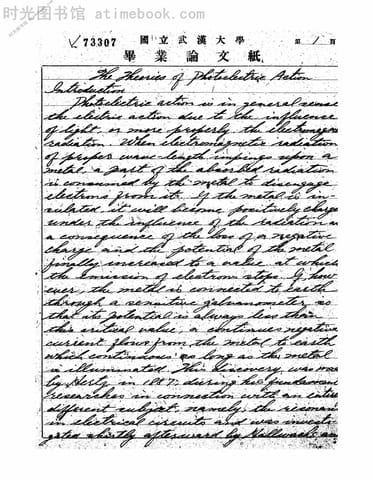 时光图书馆 · atimebook.com
√ 73307 國立武漢大學 第 1 頁
畢業論文紙
The Theories of Photoelectric Action
Introduction
Photoelectric action is in general sense
the electric action due to the influence
of light, or more properly the electromagnetic
radiation. When electromagnetic radiation
of proper wave length impings upon a
metal, a part of the absorbed radiation
is consumed by the metal to disengage
electrons from it. If the metal is in-
sulated, it will become positively charged
under the influence of the radiation as
a consequence of the loss of a negative
charge and the potential of the metal
finally increased to a value at which
the emission of electrons stops. If how
ever, the metal is connected to earth
through a sensitive galvanometer, so
that its potential is always less than
this critical value, a continues negative
current flows from the metal to earth
which continuous as long as the metal
is illuminated. This discovery was made
by Hertz in 1887, during his fundamental
researches in connection with an entire
different subject, namely, the resonance
in electrical circuits and was invest
gated shortly afterward by Hallwachs an